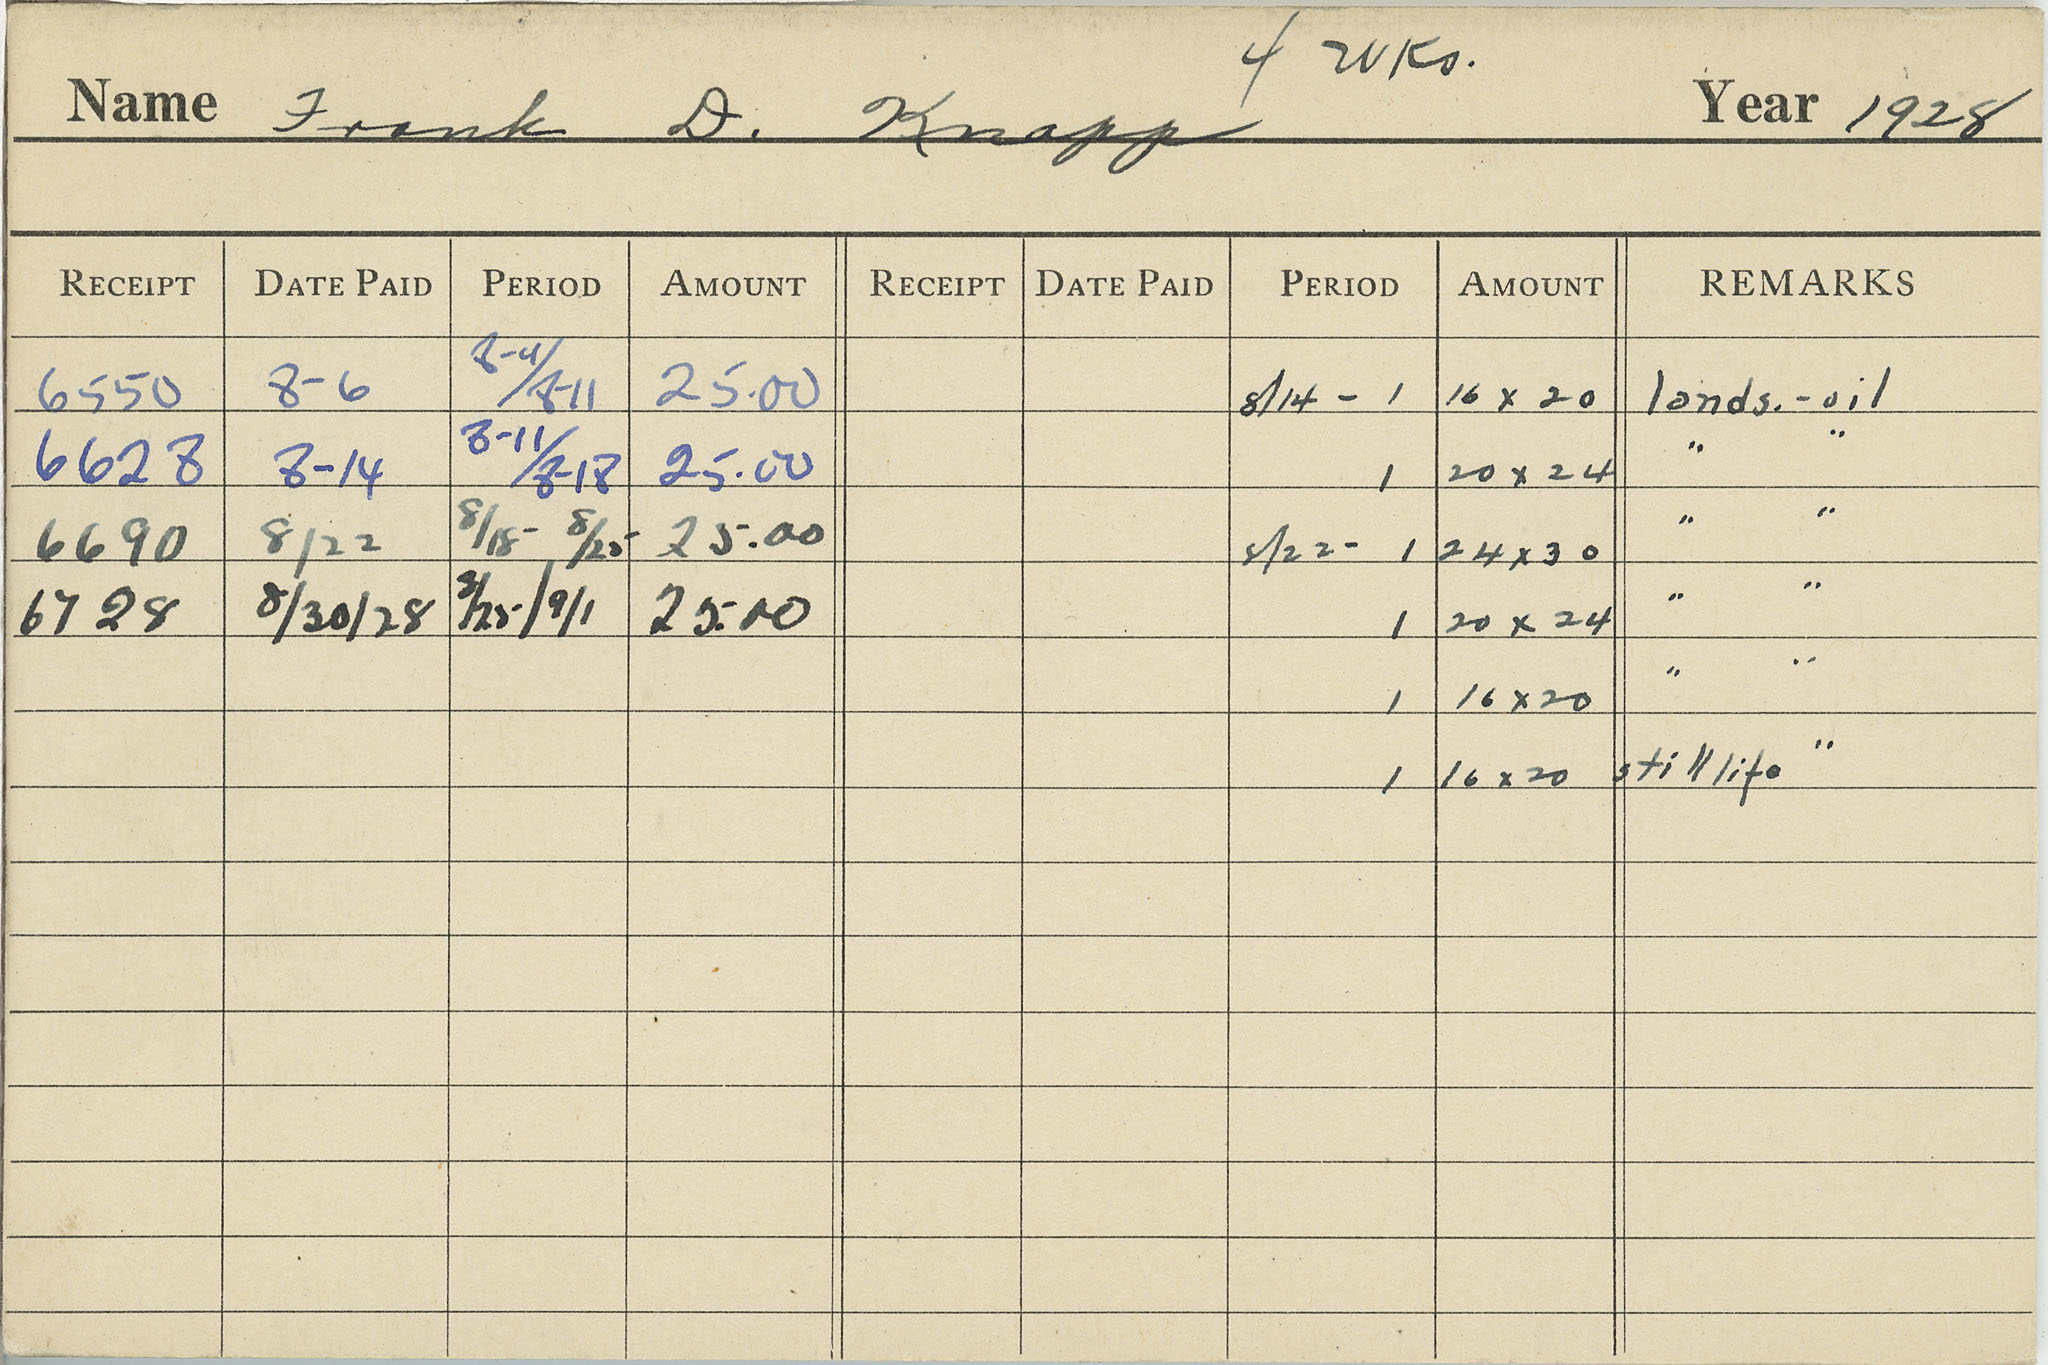 4 wks.
Name Frank D. Knapp Year 1928
RECEIPT DATE PAID PERIOD AMOUNT RECEIPT DATE PAID PERIOD AMOUNT REMARKS
6550 8-6 8-4/8-11 25.00 8/14 - 1 16 x 20 lands. - oil
6628 8-14 8-11/8-18 25.00 1 20 x 24 " "
6690 8/22 8/18- 8/25- 25.00 8/22- 1 24 x 30 " "
6728 8/30/28 8/25-/9/1 25.00 1 20 x 24 " "
1 16 x 20 " "
1 16 x 20 still life "